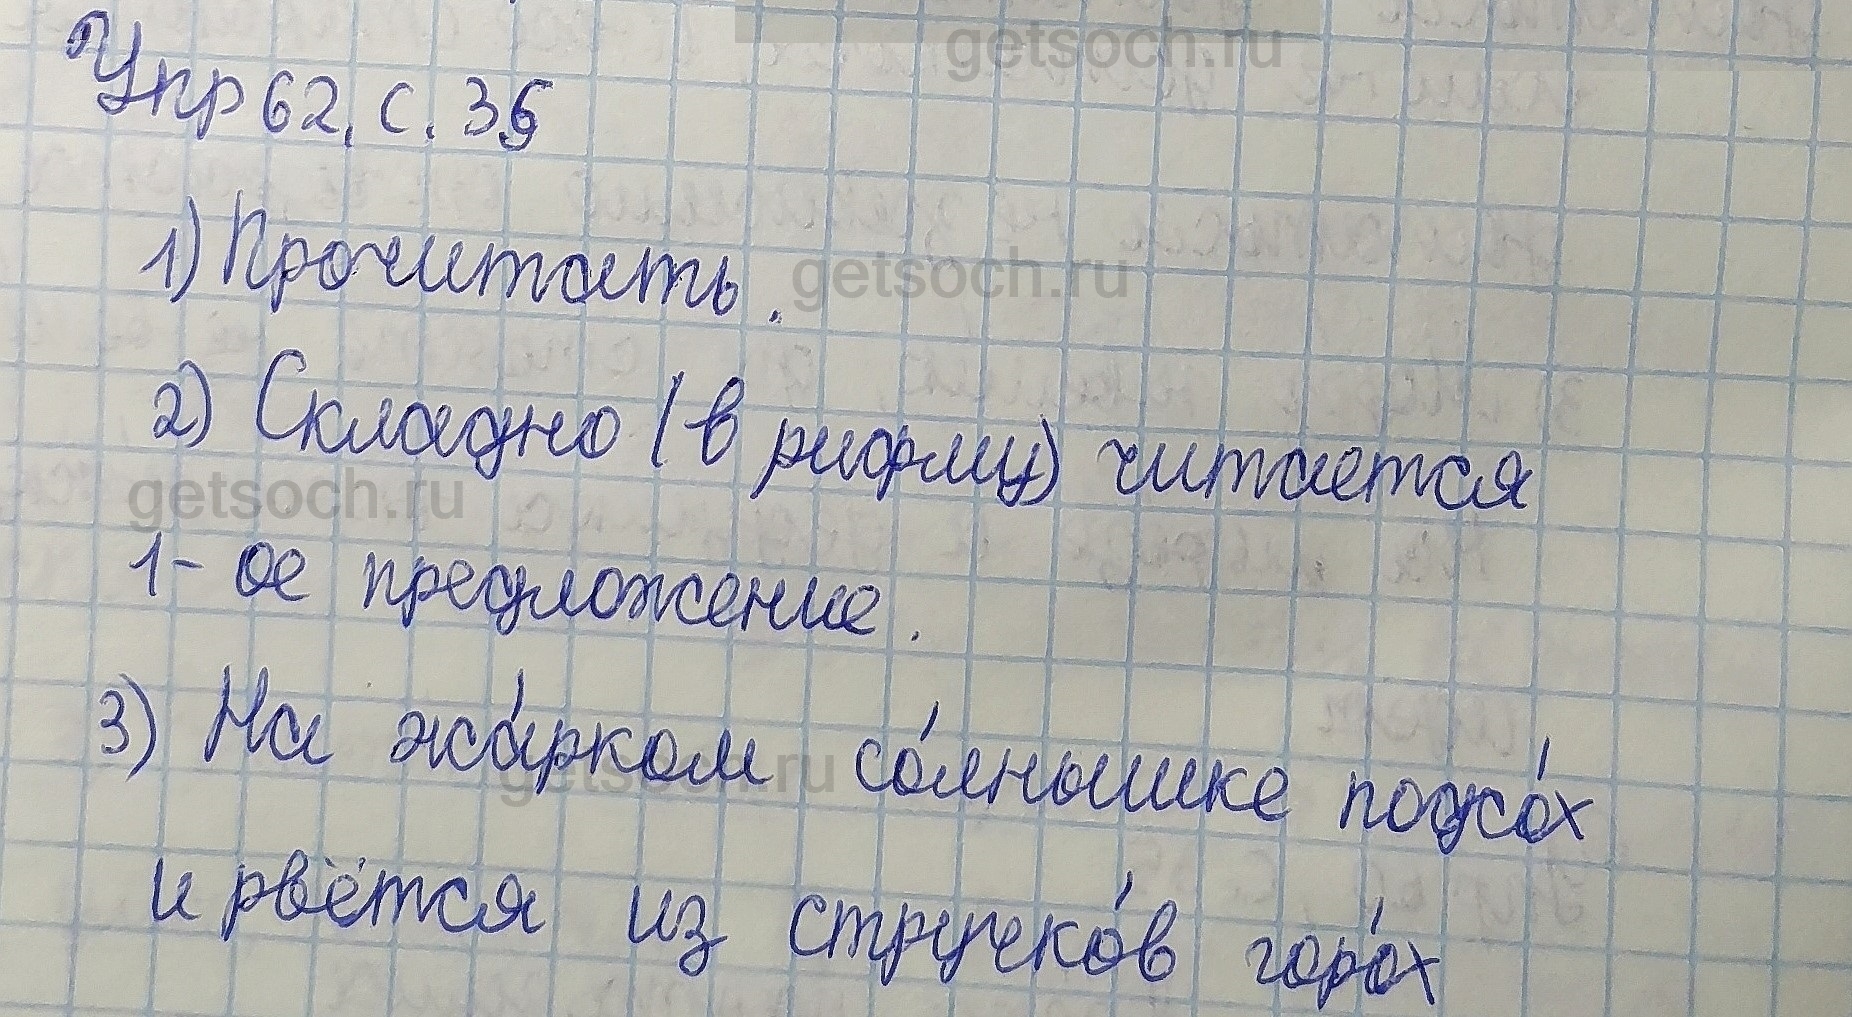 getsoch.ru
Упр 62. с. 35
1) Прочитать.
getsoch.ru
2) Складно (в рифму) читается
getsoch.ru
1-ое предложение.
3) На жа́рком со́лнышке подсо́х
getsoch.ru
и рвётся из стручко́в горо́х